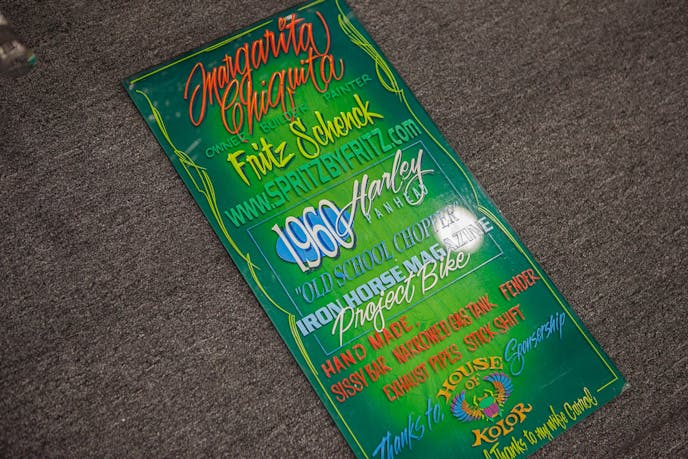 Margarita
Chiquita
OWNER BUILDER PAINTER
Fritz Schenck
WWW.SPRITZBYFRITZ.com
1960 Harley
PANHEAD
"OLD SCHOOL CHOPPER"
IRON HORSE MAGAZINE
Project Bike
HAND MADE,
SISSY BAR NARROWED GAS TANK FENDER
EXHAUST PIPES STICK SHIFT
Thanks to, HOUSE OF KOLOR Sponsorship
& Thanks to my wife Carrol